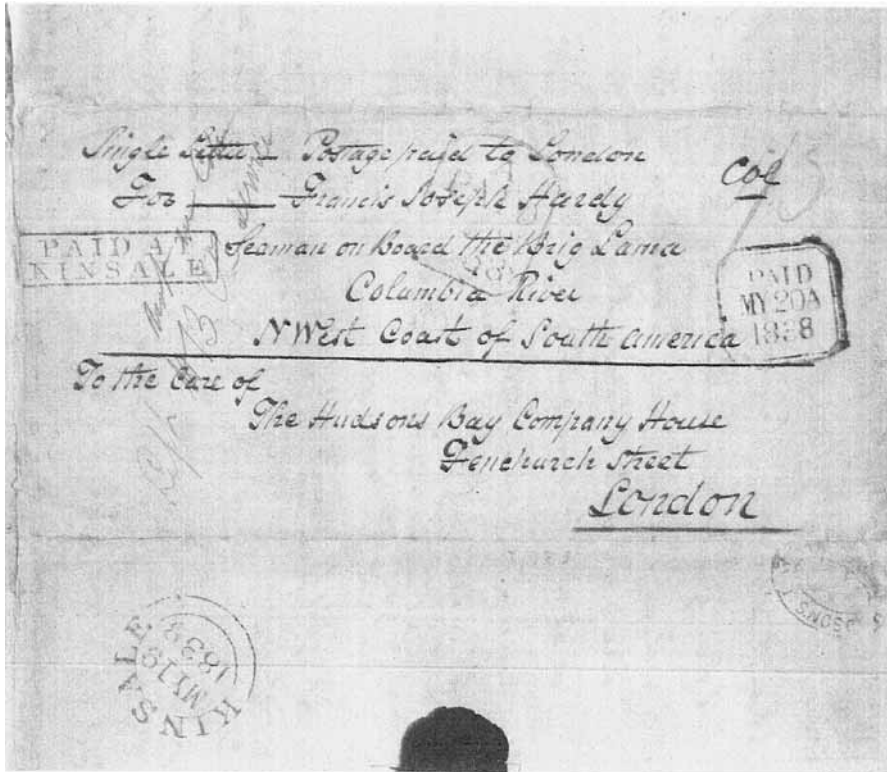 Single Letter – Postage paid to London
Col
For — Francis Joseph Hardy
PAID AT
KINSALE
Seaman on Board the Brig Lama
Columbia River
N West Coast of South America
PAID
MY 20 A
1838
To the Care of
The Hudsons Bay Company House
Fenchurch Street
London
KINSALE
MY 19
1838